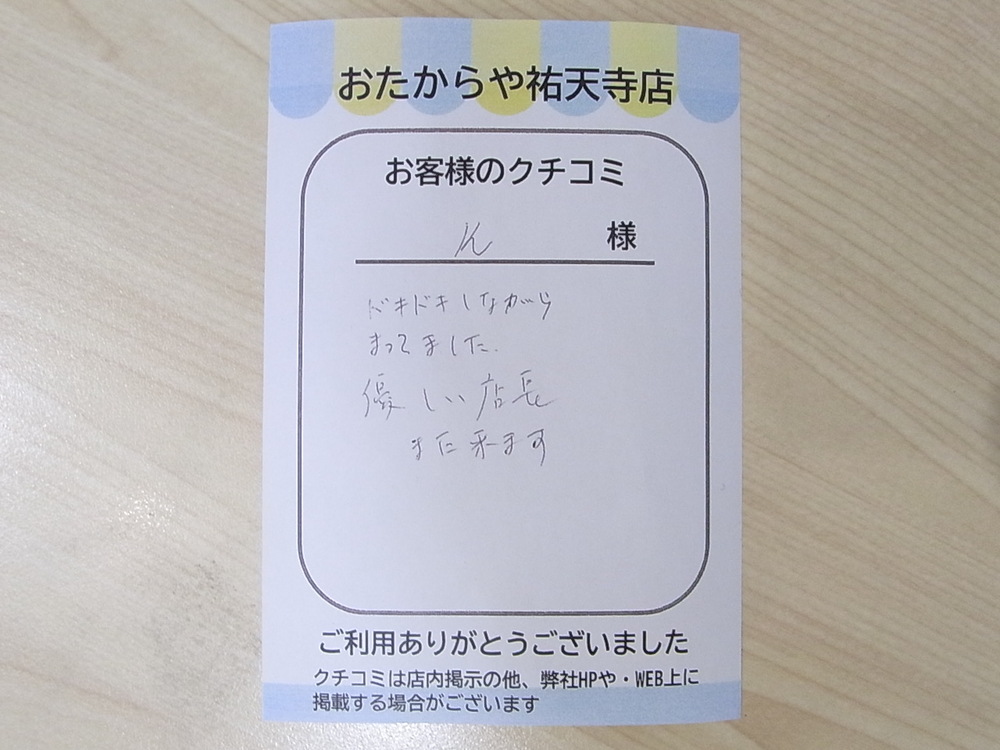 おたからや祐天寺店
お客様のクチコミ
K 様
ドキドキしながら
まってました.
優しい店長
また来ます
ご利用ありがとうございました
クチコミは店内掲示の他、弊社HPや・WEB上に
掲載する場合がございます